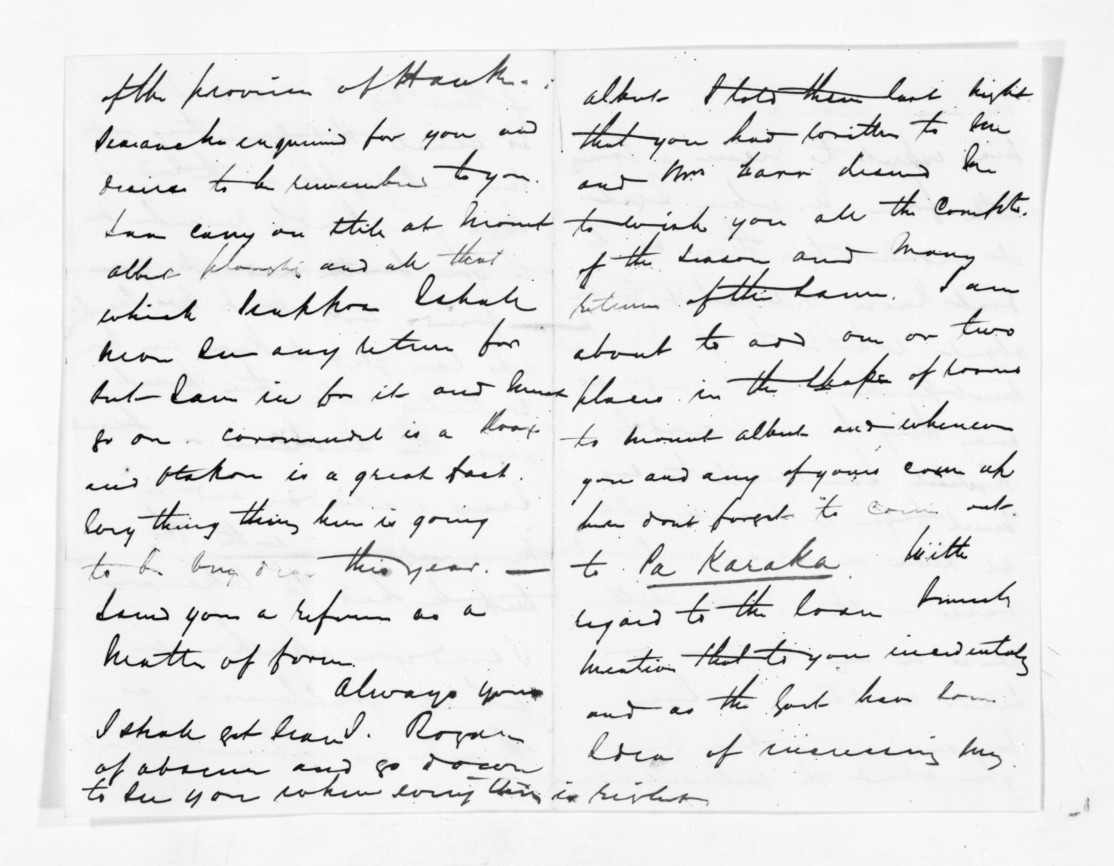 of the province of Hawk-
enquired for you and
desires to be remembered to you.
I am carrying on still at Mount
albert and all that
which I suppose I shall
never see any return for
but I am in for it and must
go on - coromandel is a Hoax
and is a great fact.
Every thing here is going
to be this year. —
I send you a return as a
Matter of form
Always yours
I shall get leave J. Rogan
of absence and go down
to see you when every thing is right
albert I told them last night
that you had written to me
and Mrs desired me
to wish you all the complts.
of the season and Many
returns of the same. I am
about to add one or two
places in the shape of rooms
to mount albert and whenever
you and any of yours come up
here dont forget to come out
to Pa Karaka With
regard to the loan I merely
mention that to you incidentaly
and as the Govt have some
Idea of increasing my